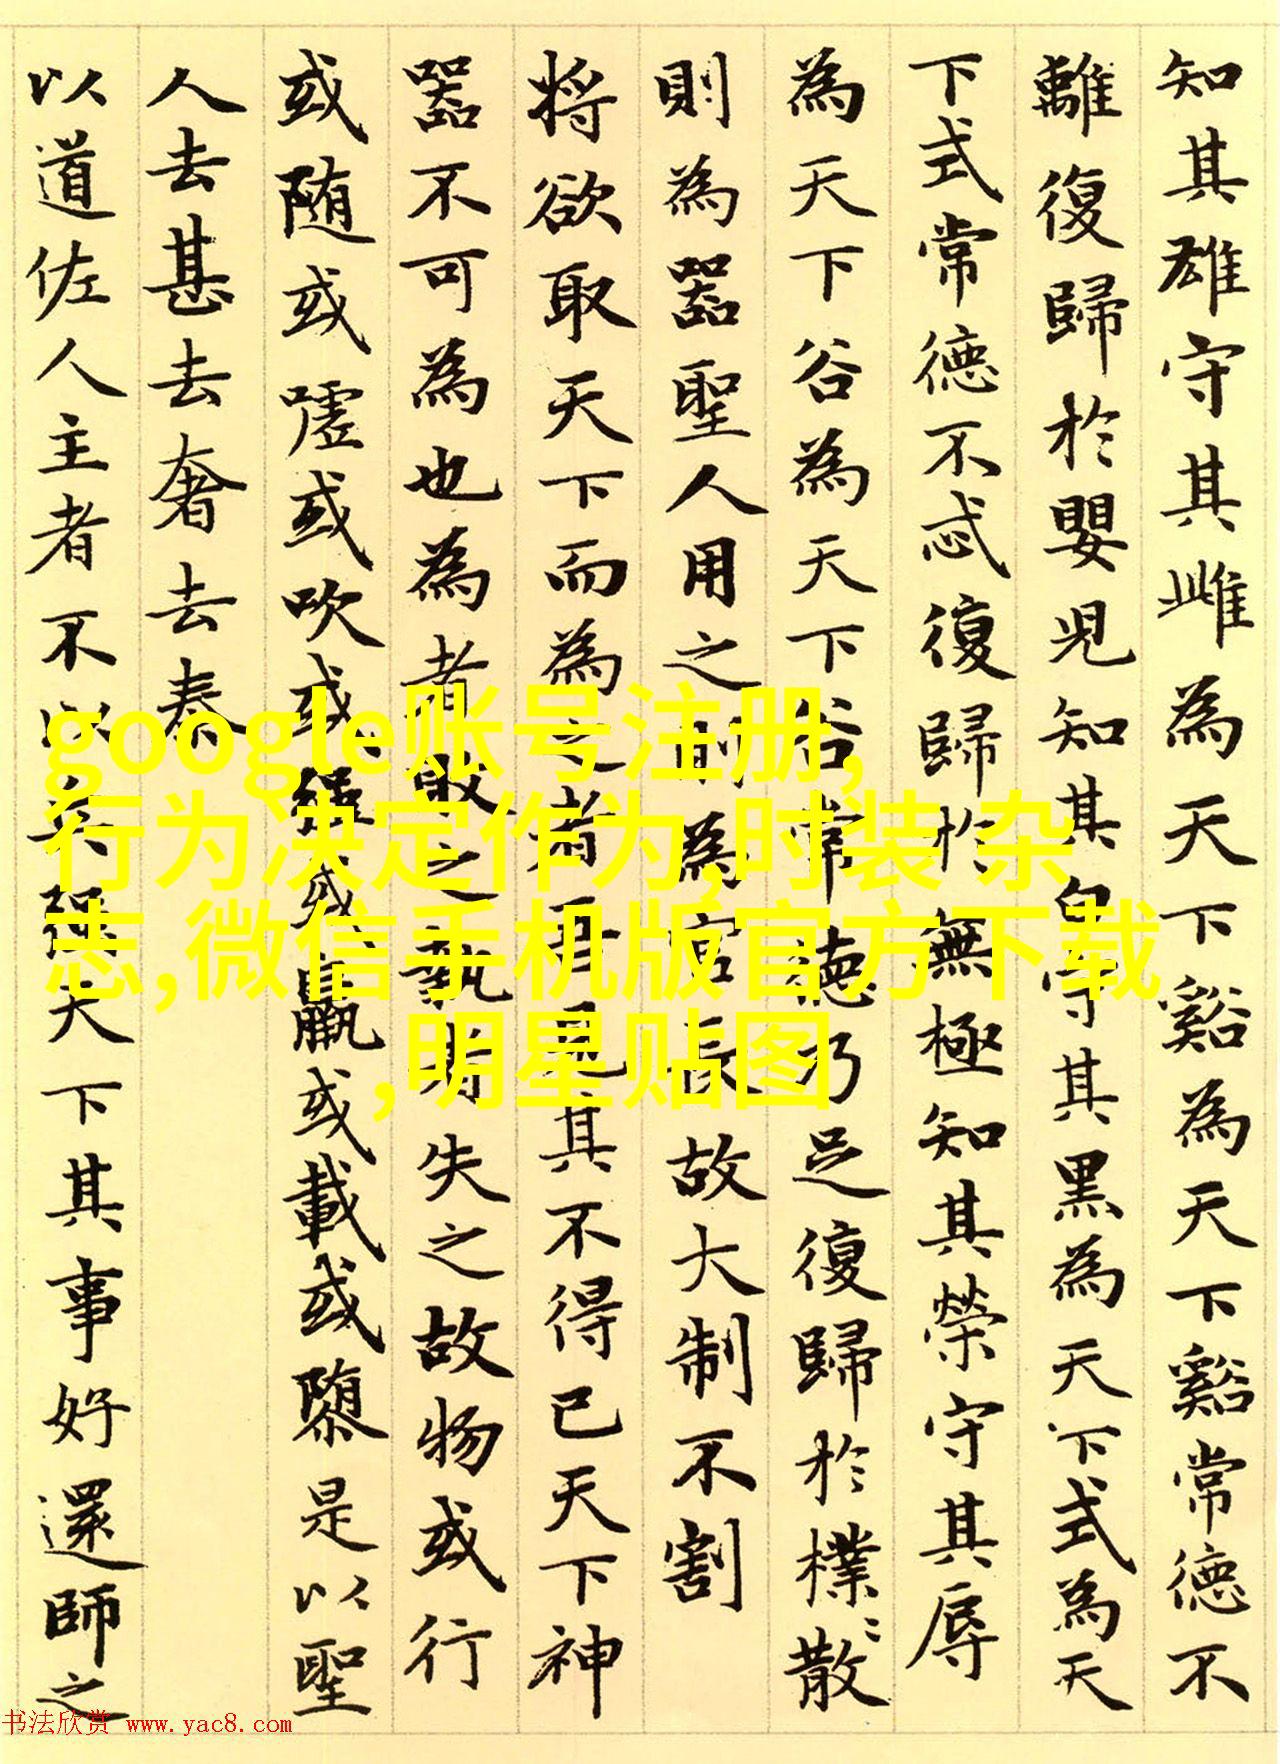 知其雄守其雌為天下谿為天下谿常德不
離復歸於嬰兒知其白守其黑為天下式為天
下式常德不忒復歸於無極知其榮守其辱
為天下谷為天下谷常德乃足復歸於樸〻散
則為器聖人用之則為官長故大制不割
将欲取天下而為之者吾見其不得已天下神
器不可為也為者敗之執者失之故物或行
或随或嘘或吹或強或羸或載或隳是以聖
人去甚去奢去泰
以道佐人主者不以兵強天下其事好還師之
google账号注册,
行为决定作为,时装 杂
志,微信手机版官方下载
,明星贴图
书法欣赏 www.yac8.com